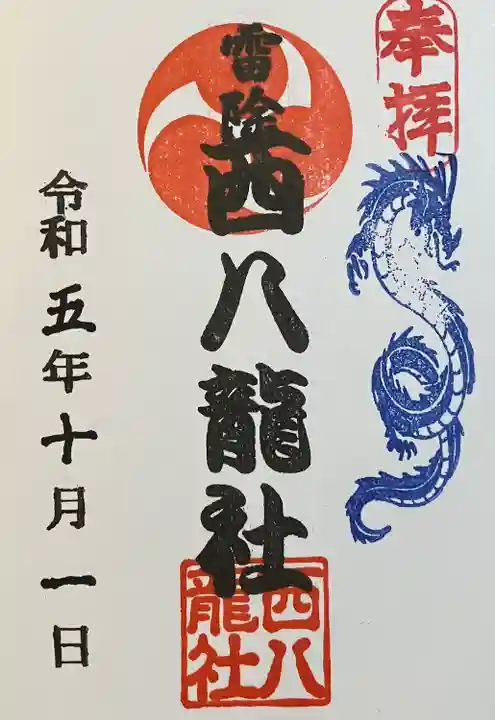 奉拝
雷除
四八龍社
四八
龍社
令和五年十月一日